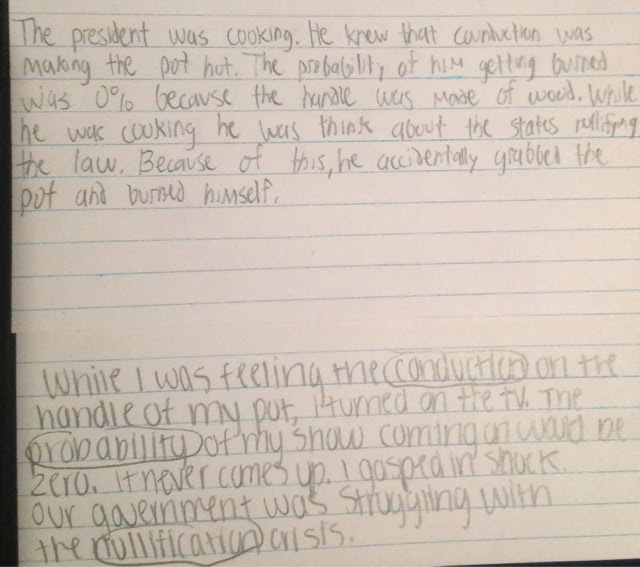 The president was cooking. He knew that counduction was
making the pot hot. The probability of him getting burned
was 0% because the handle was made of wood. While
he was cooking he was think about the states nullifying
the law. Because of this, he accidentally grabbed the
pot and burned himself.
While I was feeling the conduction on the
handle of my pot, I turned on the tv. The
probability of my show coming on would be
zero. It never comes up. I gasped in shock.
our government was struggling with
the nullification crisis.